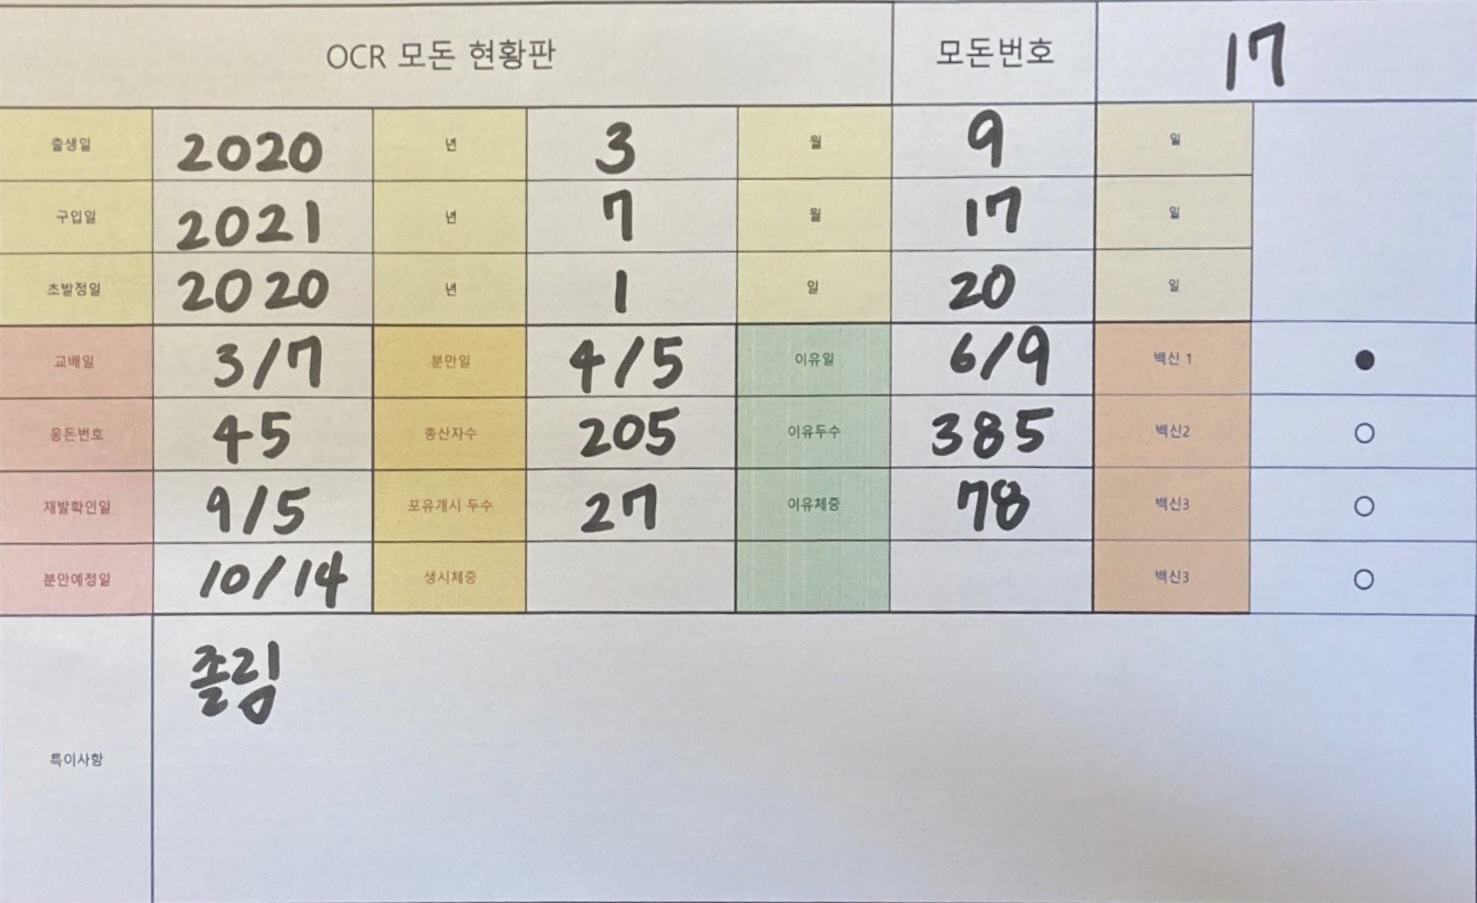 OCR 모돈 현황판 모돈번호 17
출생일 2020 년 3 월 9 일
구입일 2021 년 7 월 17 일
초발정일 2020 년 1 일 20 일
교배일 3/7 분만일 4/5 이유일 6/9 백신 1 ●
웅돈번호 45 총산자수 205 이유두수 385 백신2 ○
재발확인일 9/5 포유개시 두수 27 이유체중 78 백신3 ○
분만예정일 10/14 생시체중 백신3 ○
졸림
특이사항